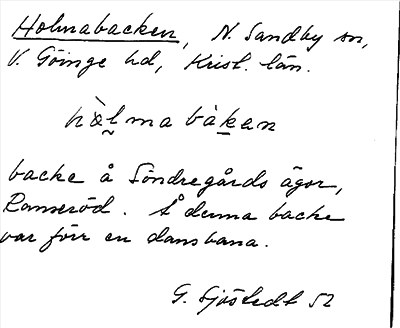 Holmabacken, N. Sandby sn,
V. Göinge hd, Krist. län.
hòlma bàken
backe å Söndregårds ägor,
Ramseröd. Å denna backe
var förr en dansbana.
G. Sjöstedt 52